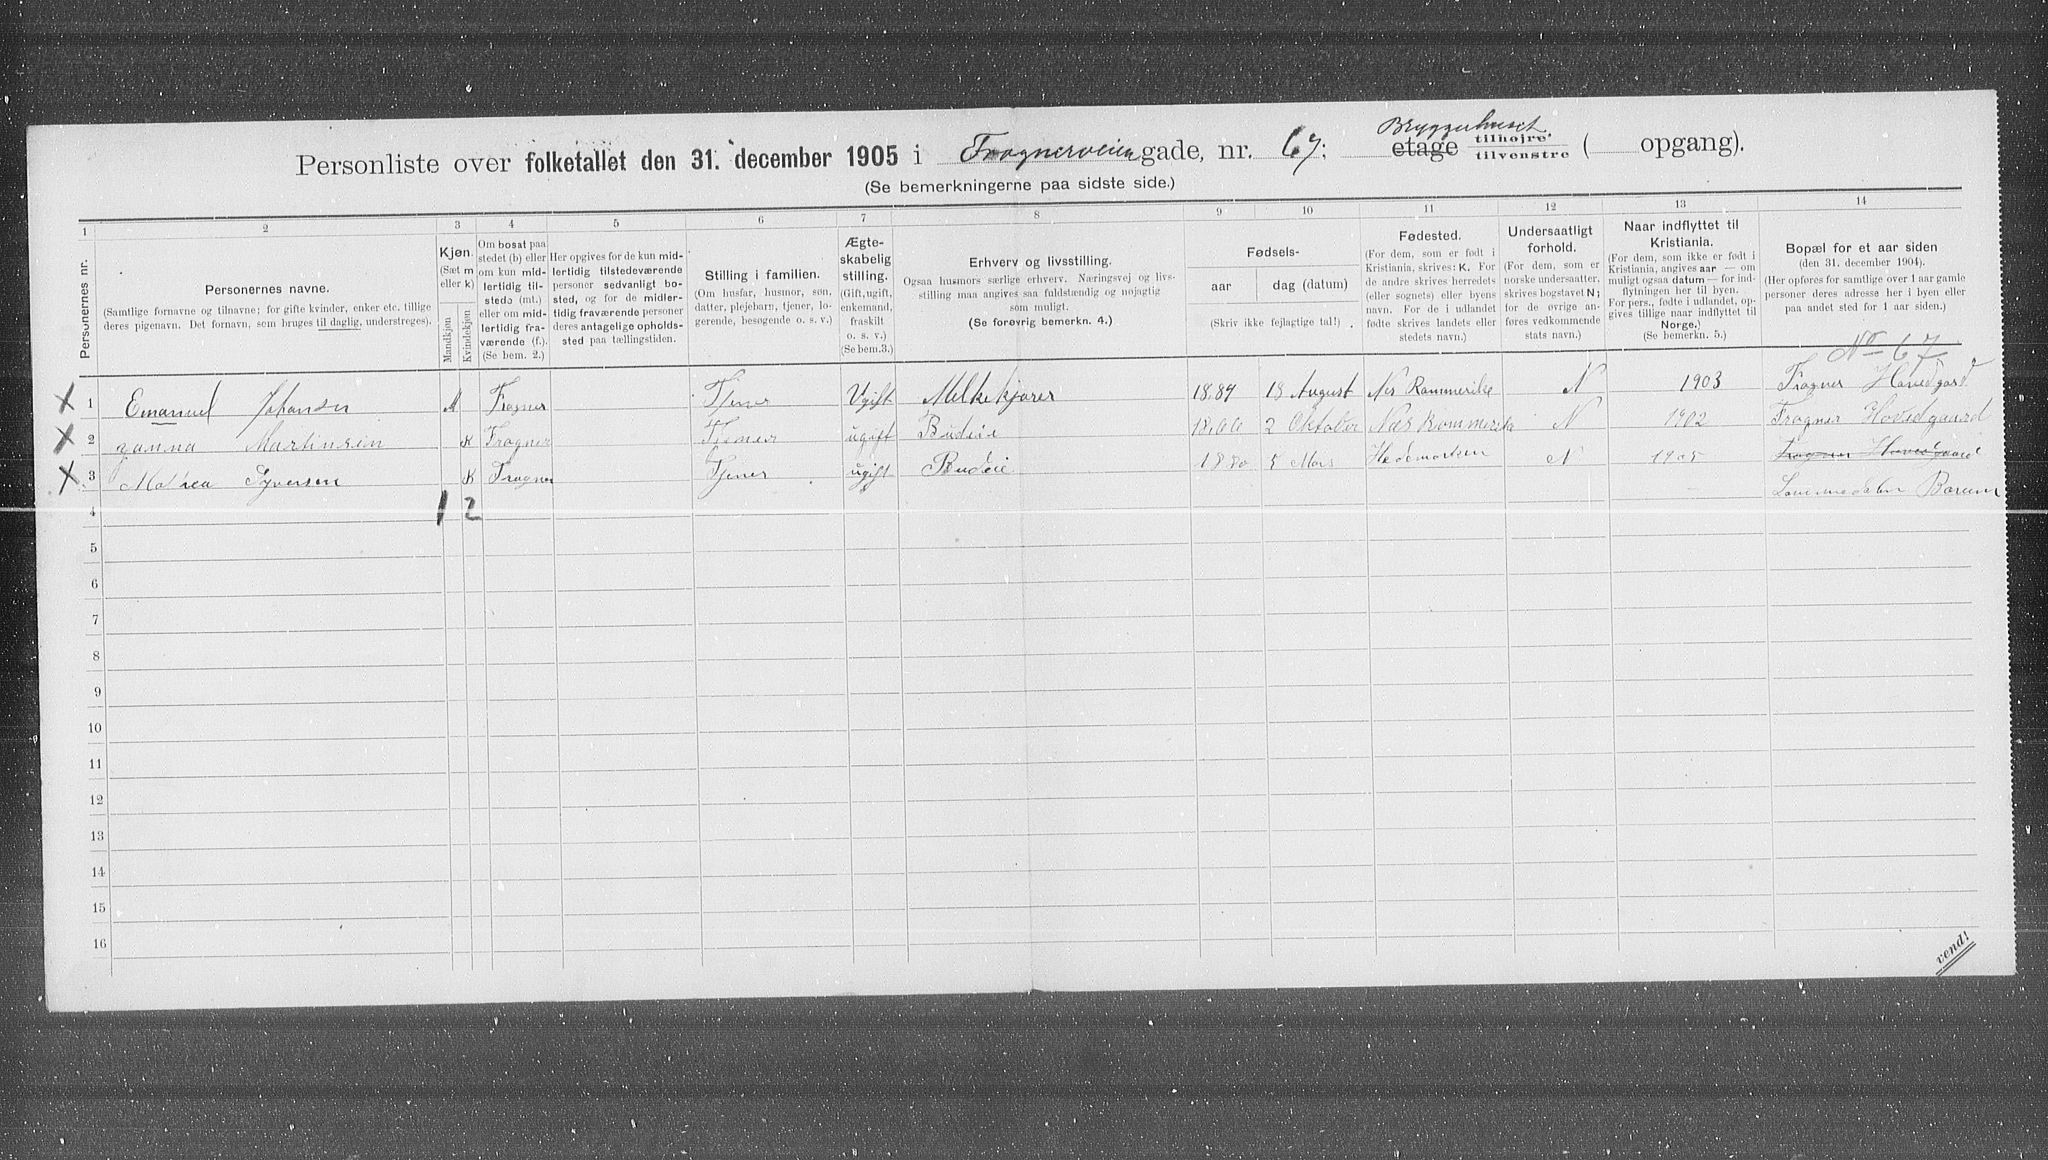 Personliste over folketallet den 31. december 1905 i Frognerveien gade, nr. 67; Bryggerhuset. etage tilhøjre tilvenstre ( opgang).
(Se bemerkningerne paa sidste side.)
1 2 3 4 5 6 7 8 9 10 11 12 13 14
Personernes nr.
Personernes navne.
(Samtlige fornavne og tilnavne; for gifte kvinder, enker etc. tillige
deres pigenavn. Det fornavn, som bruges til daglig, understreges).
Kjøn.
(Sæt m
eller k)
Mandkjøn
Kvindekjøn
Om bosat paa
stedet (b) eller
om kun mid-
lertidig til-
stede (mt.)
eller om mid-
lertidig fra-
værende (f.).
(Se bem. 2.)
Her opgives for de kun mid-
lertidig tilstedeværende
personer sedvanligt bo-
sted, og for de midler-
tidig fraværende personer
deres antagelige opholds-
sted paa tællingstiden.
Stilling i familien.
(Om husfar, husmor, søn,
datter, plejebarn, tjener, lo-
gerende, besøgende o. s. v.)
Ægte-
skabelig
stilling.
(Gift, ugift,
enkemand,
fraskilt
o. s. v.)
(Se bem.3.)
Erhverv og livsstilling.
Ogsaa husmors særlige erhverv. Næringsvej og livs-
stilling maa angives saa fuldstændig og nøjagtig
som muligt.
(Se forøvrig bemerkn. 4.)
Fødsels-
aar dag (datum)
(Skriv ikke fejlagtige tal!)
Fødested.
(For dem, som er født i
Kristiania, skrives: K. For
de andre skrives herredets
(eller sognets) eller byens
navn. For de i udlandet
fødte skrives landets eller
stedets navn.)
Undersaatligt
forhold.
(For dem, som er
norske undersaatter,
skrives bogstavet N;
for de øvrige an-
føres vedkommende
stats navn.)
Naar indflyttet til
Kristiania.
(For dem, som ikke er født i
Kristiania, angives aar — om
muligt ogsaa datum — for ind-
flytningen her til byen.
For pers., fødte i udlandet, op-
gives tillige naar indflyttet til
Norge.)
(Se bemerkn. 5.)
Bopæl for et aar siden
(den 31. december 1904).
(Her opføres for samtlige over 1 aar gamle
personer deres adresse her i byen eller
paa andet sted for 1 aar siden.)
No 67
X 1 Emanuel Johansen M Frogner Tjener Ugift Melkekjører 1889 18 August Nes Rommerike N 1903 Frogner Hovedgard
X 2 Martinsen K Frogner Tjener ugift Budeie 2 Oktober Nes Rommerike N 1902 Frogner Hovedgaard
X 3 Syversen K Frogner Tjener ugift Budeie 1880 5 Mars Hedemarken N 1905 Frogner Hovedgaard
4 1 2 Lommedalen Bærum
5
6
7
8
9
10
11
12
13
14
15
16
vend!